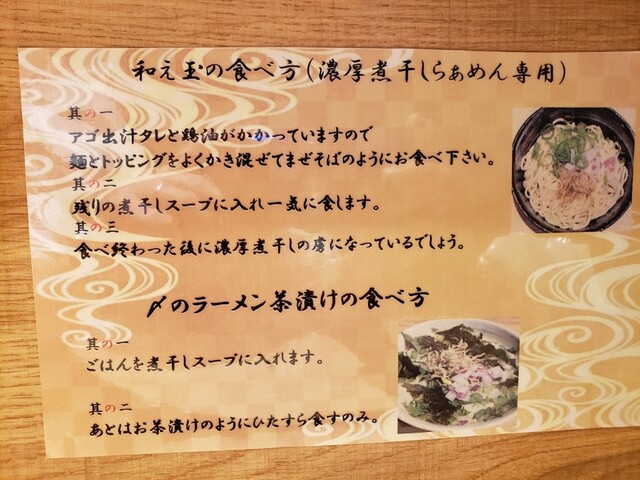 和え玉の食べ方(濃厚煮干しらぁめん専用)
其の一
アゴ出汁タレと鶏油がかかっていますので
麺とトッピングをよくかき混ぜてまぜそばのようにお食べ下さい。
其の二
残りの煮干しスープに入れ一気に食します。
其の三
食べ終わった後に濃厚煮干しの虜になっているでしょう。
〆のラーメン茶漬けの食べ方
其の一
ごはんを煮干しスープに入れます。
其の二
あとはお茶漬けのようにひたすら食すのみ。